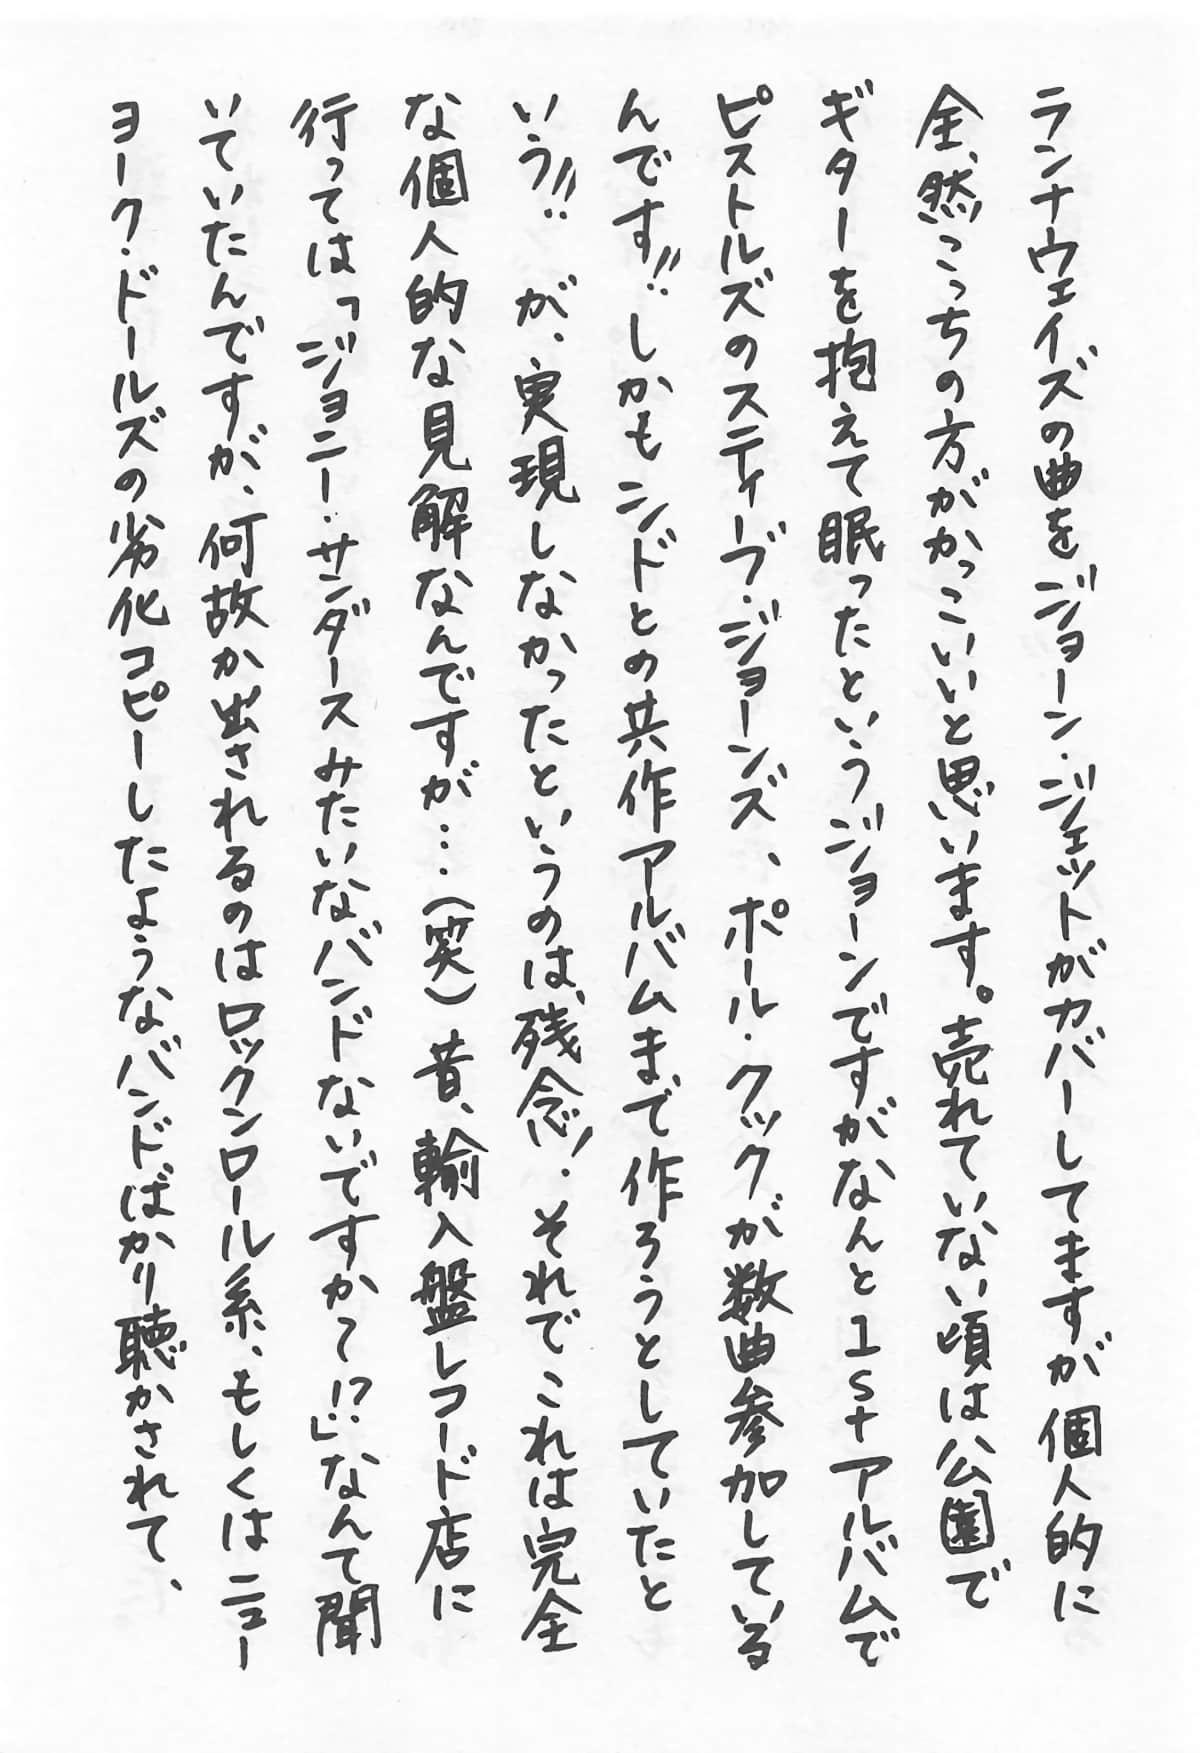 ランナウェイズの曲をジョーン・ジェットがカバーしてますが個人的に
全、然こっちの方がかっこいいと思います。売れていない頃は公園で
ギターを抱えて眠ったというジョーンですがなんと1stアルバムで
ピストルズのスティーブ・ジョーンズ、ポール・クックが数曲参加している
んです!!しかもシドとの共作アルバムまで作ろうとしていたと
いう!!が、実現しなかったというのは、残念!それでこれは完全
な個人的な見解なんですが…(笑)昔、輸入盤レコード店に
行っては「ジョニー・サンダースみたいなバンドないですか〜!?」なんて聞
いていたんですが、何故か出されるのはロックンロール系、もしくはニュー
ヨーク・ドールズの劣化コピーしたようなバンドばかり聴かされて、